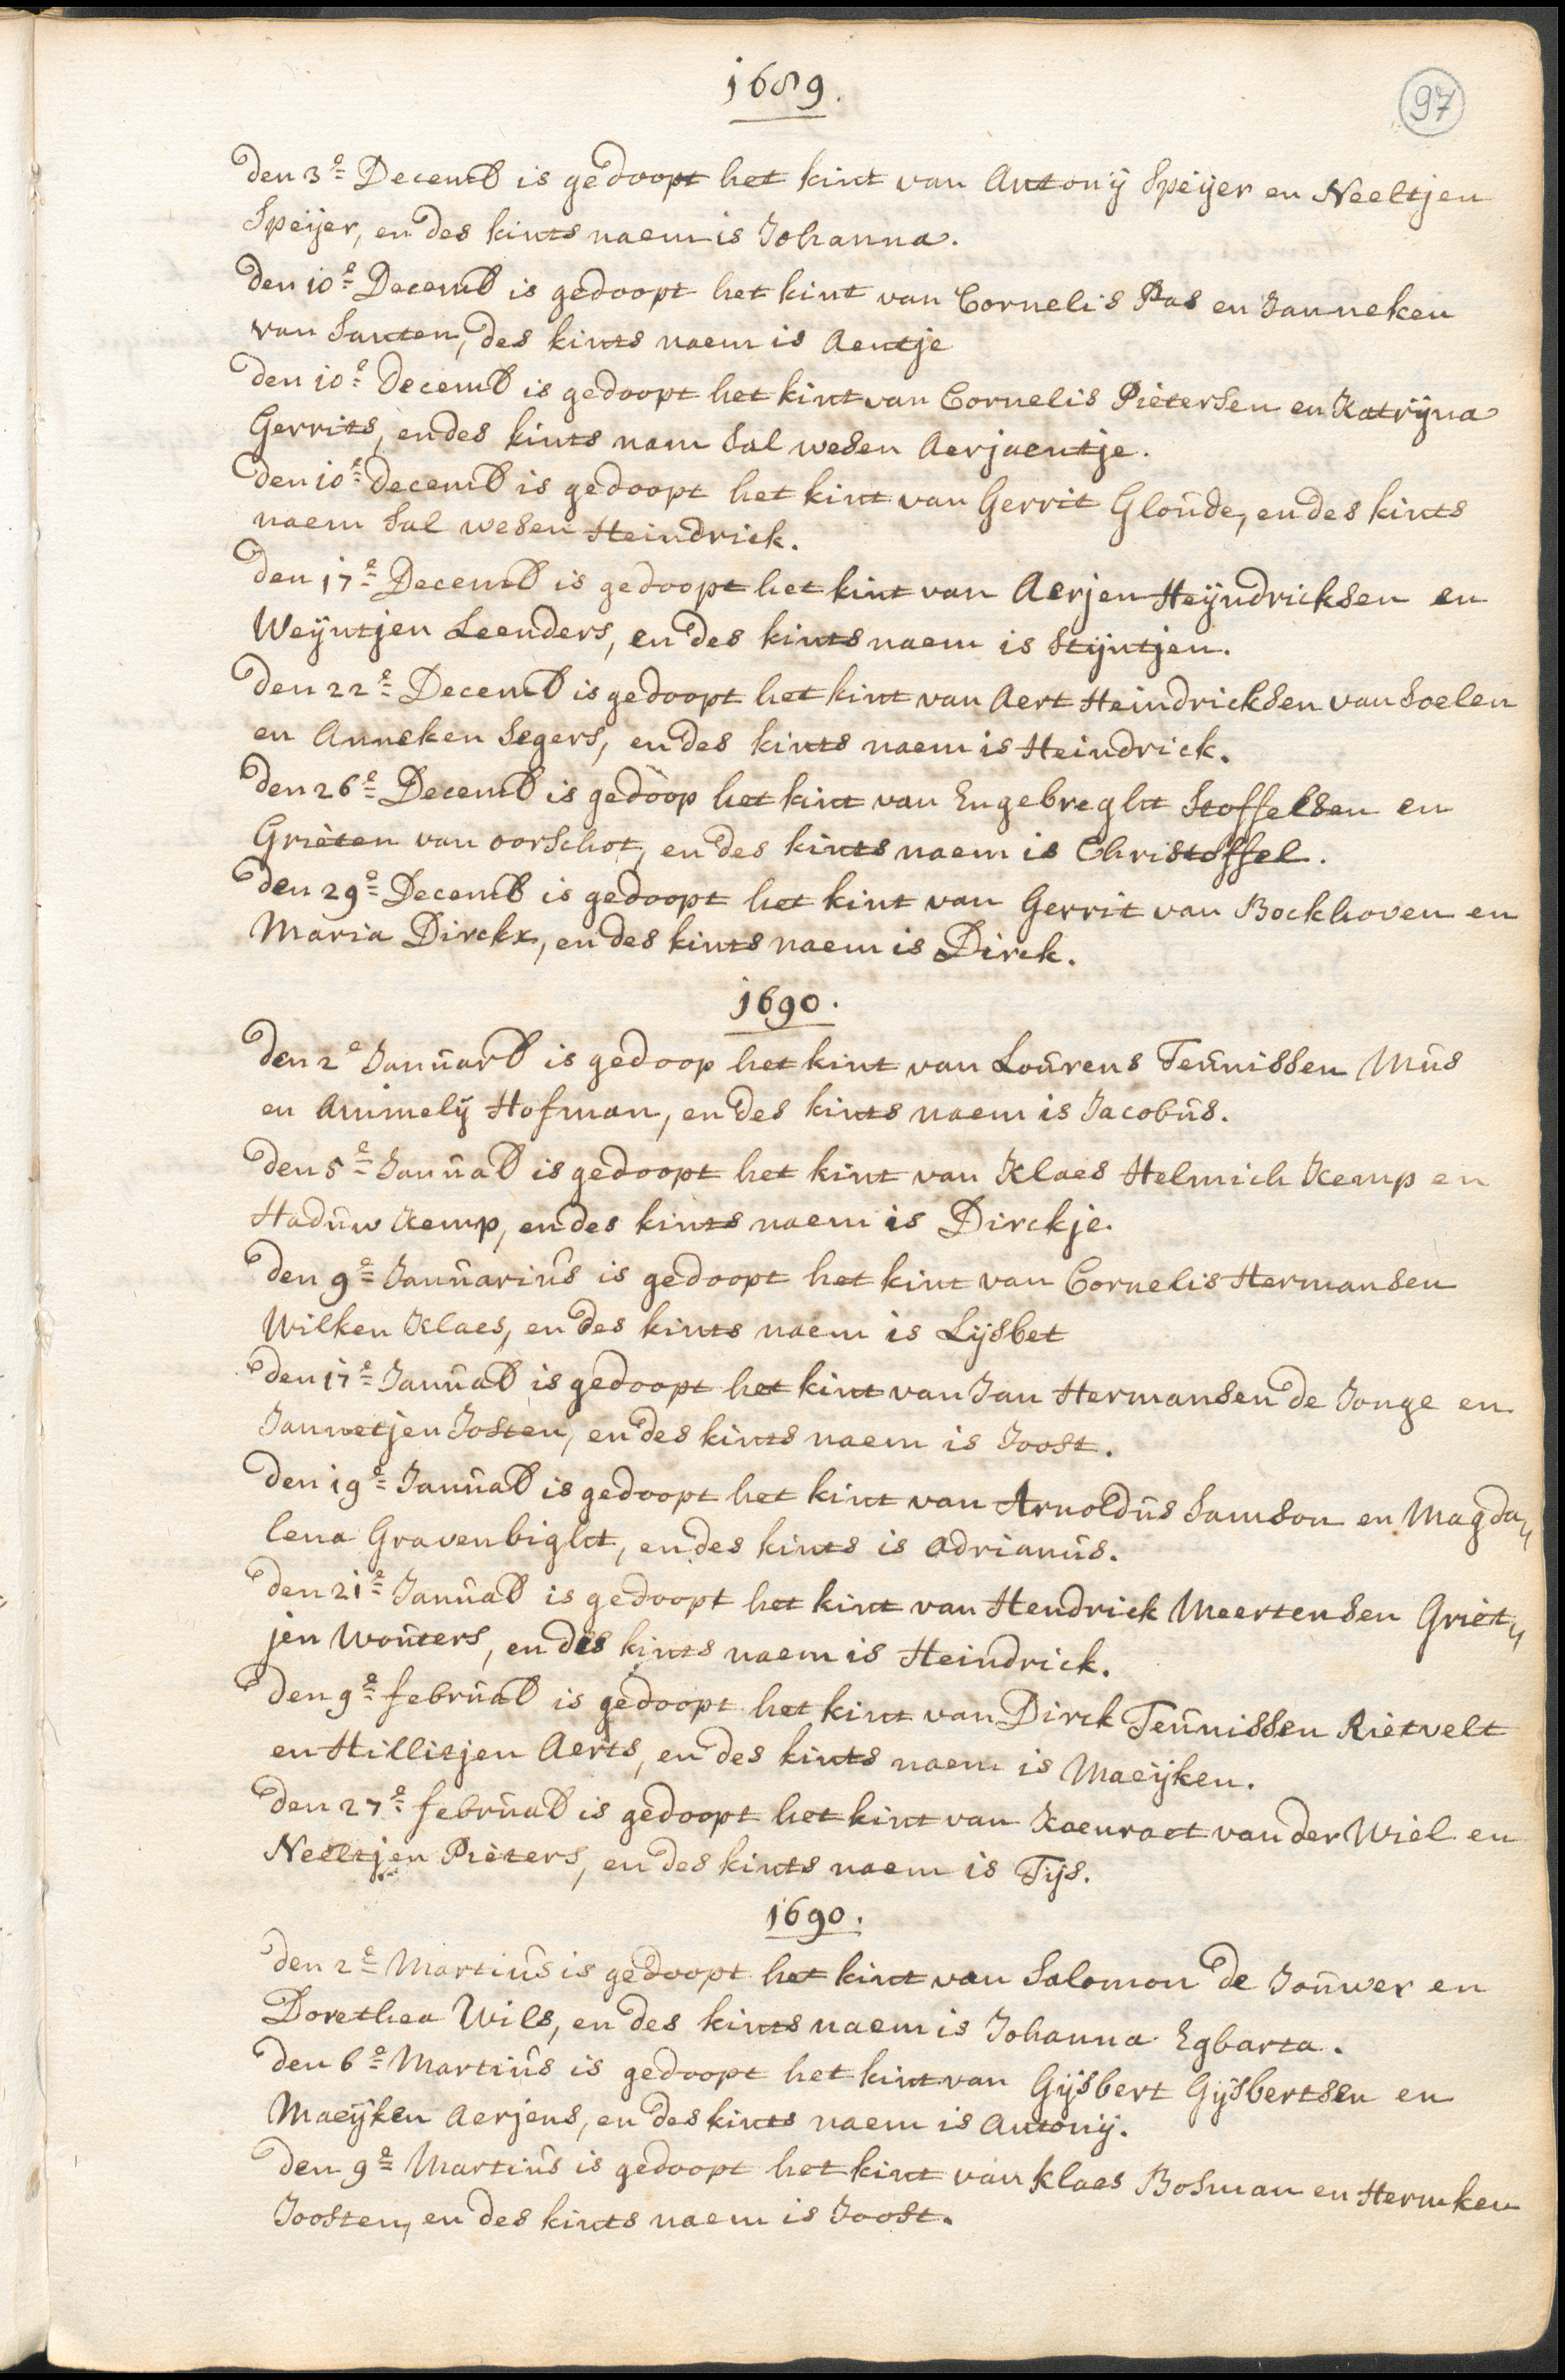 1689.
97
Den 3e Decemb is gedoopt het kint van Antonij Speijer en Neeltjen
Speijer, en des kints naem is Johanna.
Den 10e Decemb is gedoopt het kint van Cornelis Pas en Janneken
van Santen, des kints naem is Aentje
Den 10e Decemb is gedoopt het kint van Cornelis Pietersen en Katrijna
Gerrits, en des kints nam sal wesen Aerjaentje.
Den 10e Decemb is gedoopt het kint van Gerrit Gloude, en des kints
naem sal wesen Heindrick.
Den 17e Decemb is gedoopt het kint van Aerjen Heijndricksen en
Weijntjen Leenders, en des kints naem is Stijntjen.
Den 22e Decemb is gedoopt het kint van Aert Heindricksen van Soelen
en Anneken Segers, en des kints naem is Heindrick.
Den 26e Decemb is gedoop het kint van Engebreght Stoffelsen en
Grieten van Oorschot, en des kints naem is Christoffel.
Den 29e Decemb is gedoopt het kint van Gerrit van Bockhoven en
Maria Dirckx, en des kints naem is Dirck.
1690.
Den 2e Januarb is gedoop het kint van Lourens Teunissen Mus
en Ammelij Hofman, en des kints naem is Jacobus.
Den 5e Januab is gedoopt het kint van Klaes Helmich Kemp en
Haduw Kemp, en des kints naem is Dirckje.
Den 9e Januarius is gedoopt het kint van Cornelis Hermansen
Wilken Klaes, en des kints naem is Lijsbet
Den 17e Januab is gedoopt het kint van Jan Hermansen de Jonge en
Jannetjen Josten, en des kints naem is Joost.
Den 19e Januab is gedoopt het kint van Arnoldus Samson en Magda„
lena Gravenbight, en des kints is Adrianus.
Den 21e Januab is gedoopt het kint van Hendrick Meertensen Griet„
jen Wouters, en des kints naem is Heindrick.
Den 9e februab is gedoopt het kint van Dirck Teunissen Rietvelt
en Hillitjen Aerts, en des kints naem is Maeijken.
Den 27e februab is gedoopt het kint van Koenraet van der Wiel en
Neeltjen Pieters, en des kints naem is Tijs.
1690.
Den 2e Martius is gedoopt het kint van Salomon de Jouwer en
Dorethea Wils, en des kints naem is Johanna Egbarta.
Den 6e Martius is gedoopt het kint van Gijsbert Gijsbertsen en
Maeijken Aerjens, en des kints naem is Antonij.
Den 9e Martius is gedoopt het kint van Klaes Bosman en Hermken
Joosten, en des kints naem is Joost.